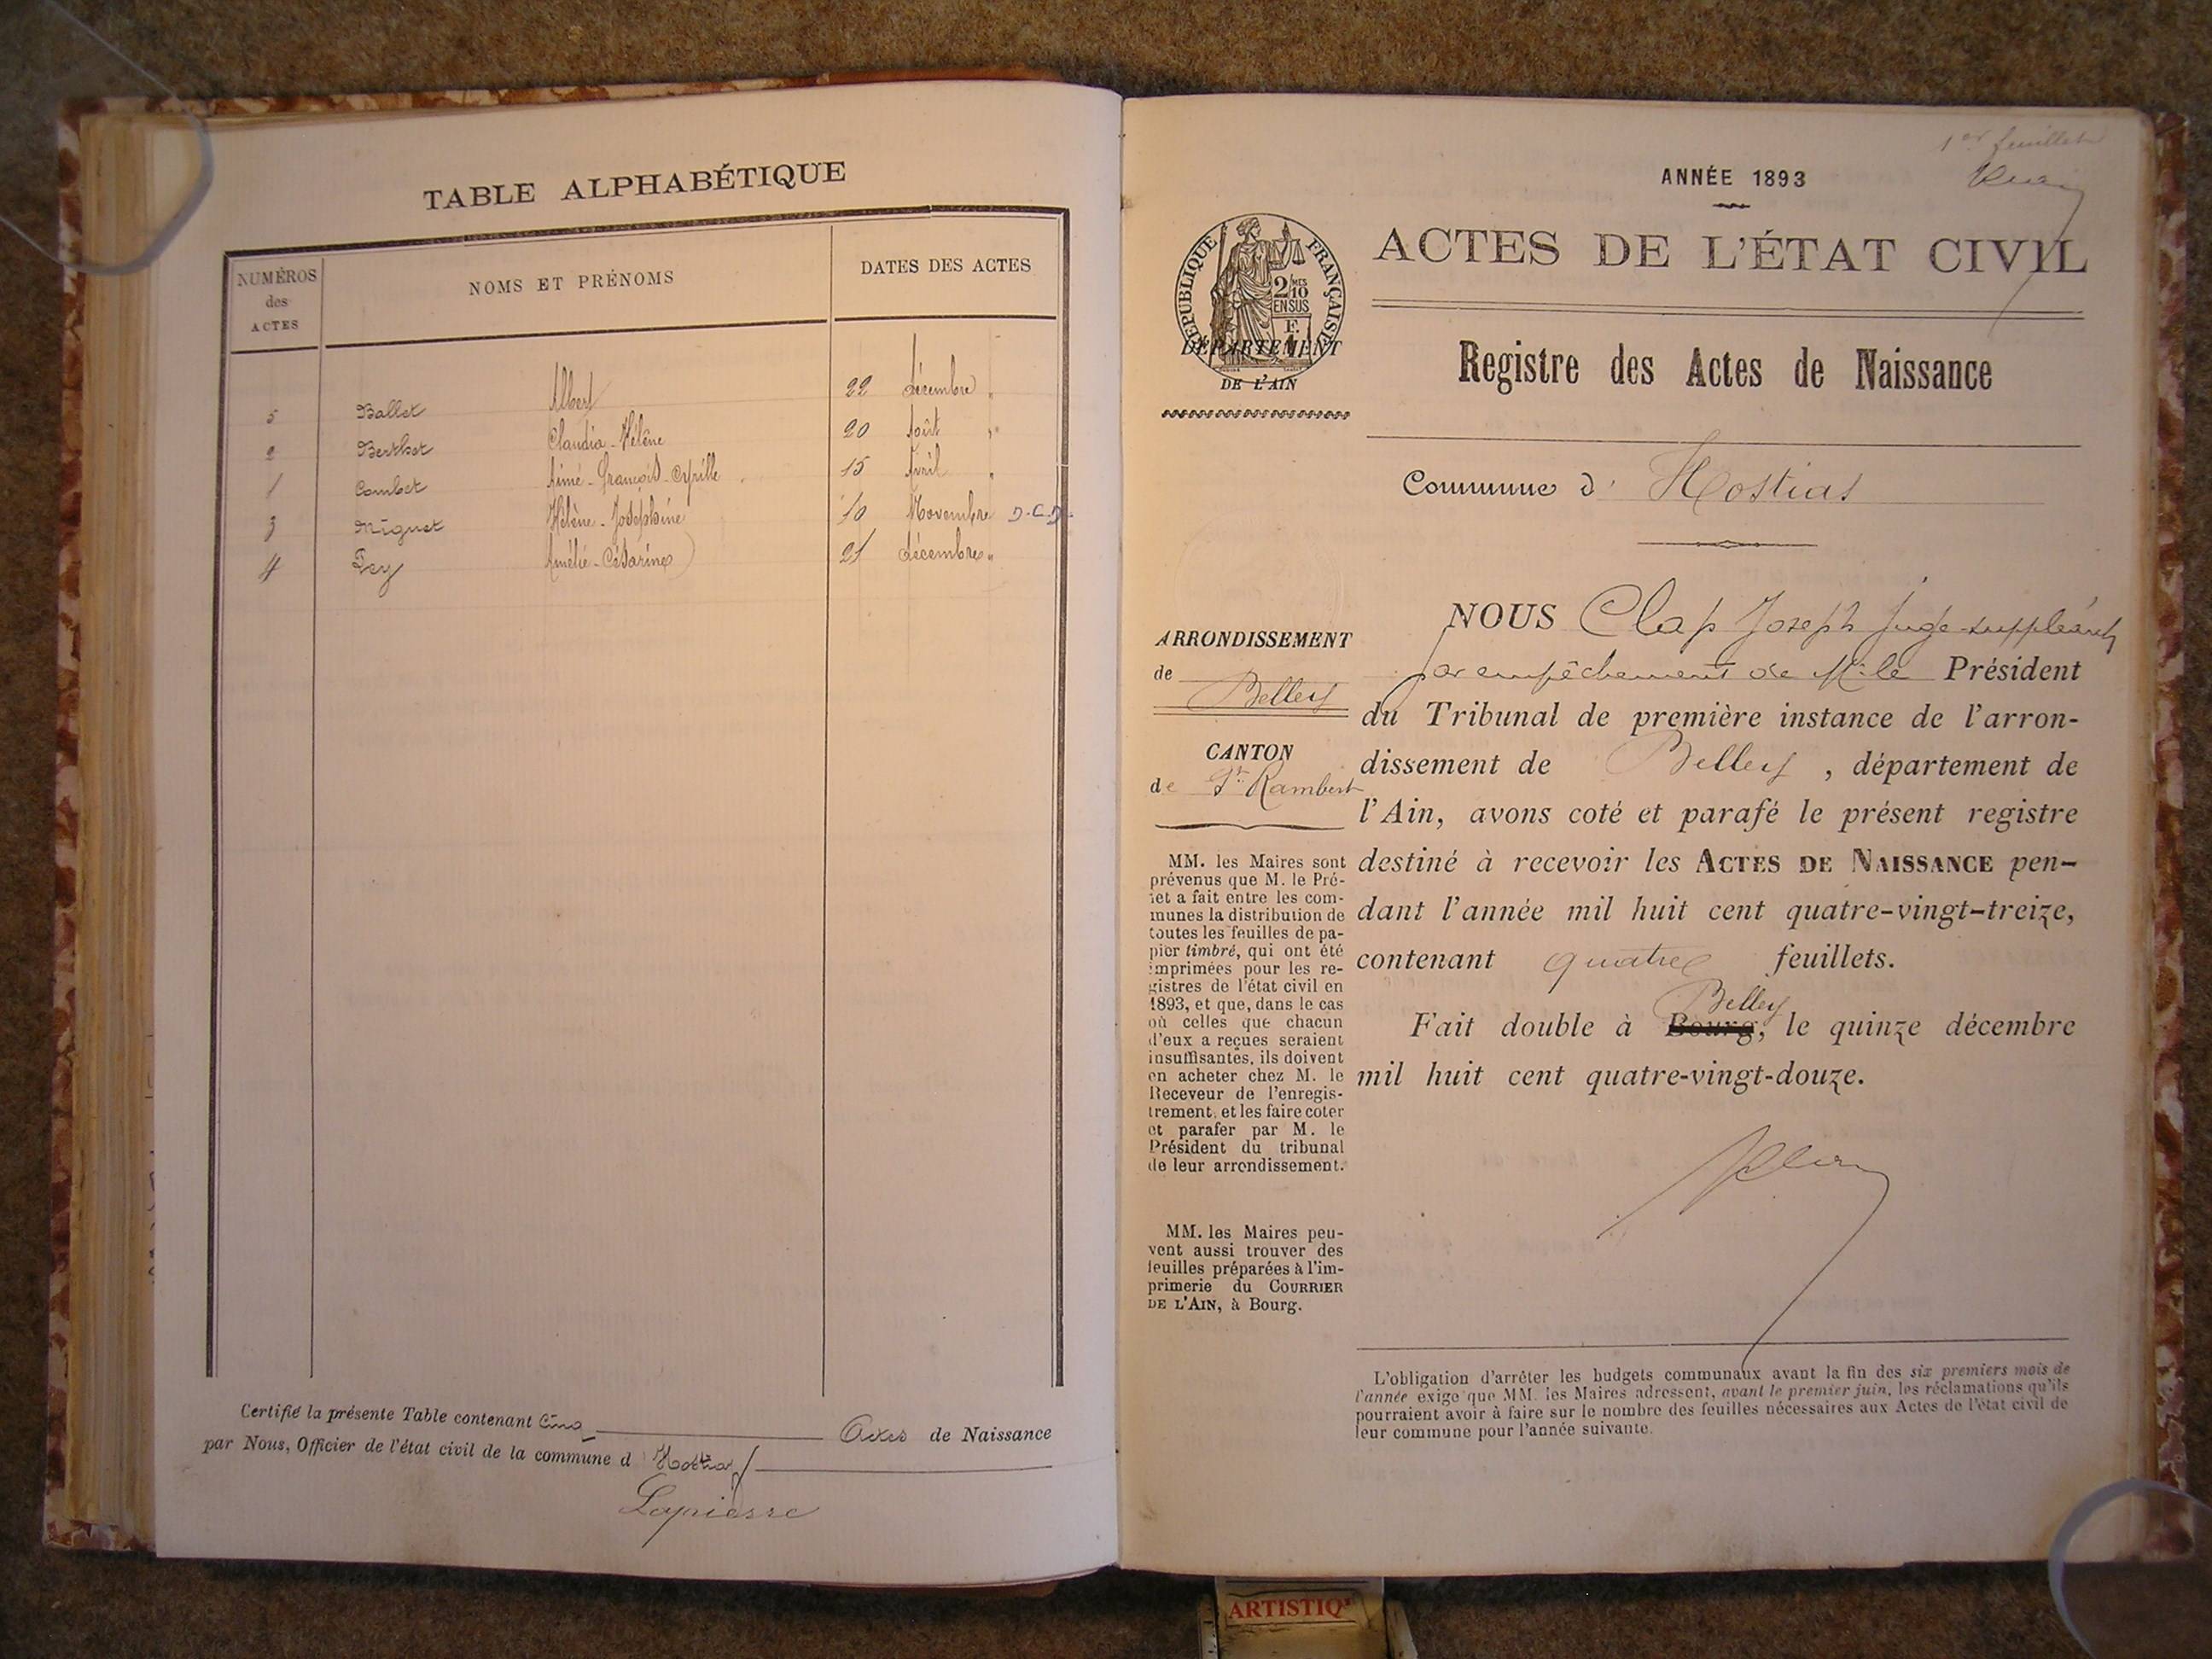 TABLE ALPHABÉTIQUE
NUMÉROS
des
ACTES
NOMS ET PRÉNOMS
DATES DES ACTES
5 Ballet Albert 22 décembre "
2 Berthet Claudia-Hélène 20 Août "
1 Combet Aimé-François-Cyrille 15 Avril "
3 Miguet Hélène-Joséphine 10 Novembre D.C.D.
4 Fey Amélie-Césarine 21 décembre "
Certifié la présente Table contenant Cinq Actes de Naissance
par Nous, Officier de l'état civil de la commune d'Hostias
Lapierre
1er feuillet
ANNÉE 1893
ACTES DE L'ÉTAT CIVIL
RÉPUBLIQUE FRANÇAISE
2/10 MES
EN SUS
F.
DÉPARTEMENT
DE L'AIN
Registre des Actes de Naissance
Commune d' Hostias
ARRONDISSEMENT
de Belley
CANTON
de St Rambert
MM. les Maires sont
prévenus que M. le Pré-
fet a fait entre les com-
munes la distribution de
toutes les feuilles de pa-
pier timbré, qui ont été
imprimées pour les re-
gistres de l'état civil en
1893, et que, dans le cas
où celles que chacun
d'eux a reçues seraient
insuffisantes, ils doivent
en acheter chez M. le
Receveur de l'enregis-
trement, et les faire coter
et parafer par M. le
Président du tribunal
de leur arrondissement.
MM. les Maires peu-
vent aussi trouver des
feuilles préparées à l'im-
primerie du COURRIER
DE L'AIN, à Bourg.
NOUS Clap Joseph Juge-suppléant
par empêchement de Mr le Président
du Tribunal de première instance de l'arron-
dissement de Belley, département de
l'Ain, avons coté et parafé le présent registre
destiné à recevoir les ACTES DE NAISSANCE pen-
dant l'année mil huit cent quatre-vingt-treize,
contenant quatre feuillets.
Belley
Fait double à Bourg, le quinze décembre
mil huit cent quatre-vingt-douze.
L'obligation d'arrêter les budgets communaux avant la fin des six premiers mois de
l'année exige que MM. les Maires adressent, avant le premier juin, les réclamations qu'ils
pourraient avoir à faire sur le nombre des feuilles nécessaires aux Actes de l'état civil de
leur commune pour l'année suivante.
ARTISTIQ